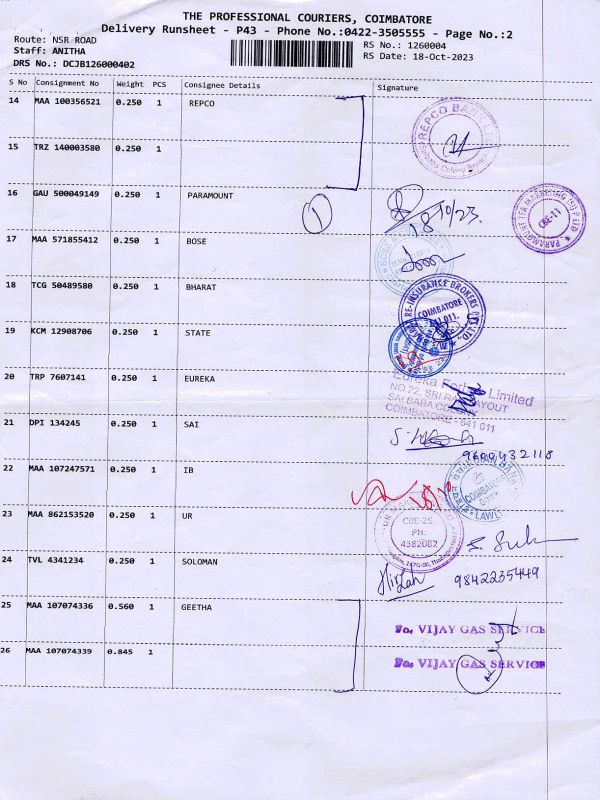 THE PROFESSIONAL COURIERS, COIMBATORE
Delivery Runsheet - P43 - Phone No.:0422-3505555 - Page No.:2
Route: NSR ROAD
Staff: ANITHA
DRS No.: DCJB126000402
RS No.: 1260004
RS Date: 18-Oct-2023
S No Consignment No Weight PCS Consignee Details Signature
14 MAA 100356521 0.250 1 REPCO
REPCO BANK LTD
15 TRZ 140003580 0.250 1
16 GAU 500049149 0.250 1 PARAMOUNT
1
18/10/23.
CBE-11
17 MAA 571855412 0.250 1 BOSE
18 TCG 50489580 0.250 1 BHARAT
RE-INSURANCE BROKERS PVT LTD.
COIMBATORE
641 011.
19 KCM 12908706 0.250 1 STATE
20 TRP 7607141 0.250 1 EUREKA
Eureka Forbes Limited
NO.22, SRI LAYOUT
SAI BABA COLONY
COIMBATORE - 641 011
21 DPI 134245 0.250 1 SAI
9600432118
22 MAA 107247571 0.250 1 IB
COIMBATORE
23 MAA 862153520 0.250 1 UR
CBE-25.
PH:
4382082
24 TVL 4341234 0.250 1 SOLOMAN
9842235449
25 MAA 107074336 0.560 1 GEETHA
For VIJAY GAS SERVICE
26 MAA 107074339 0.845 1
For VIJAY GAS SERVICE